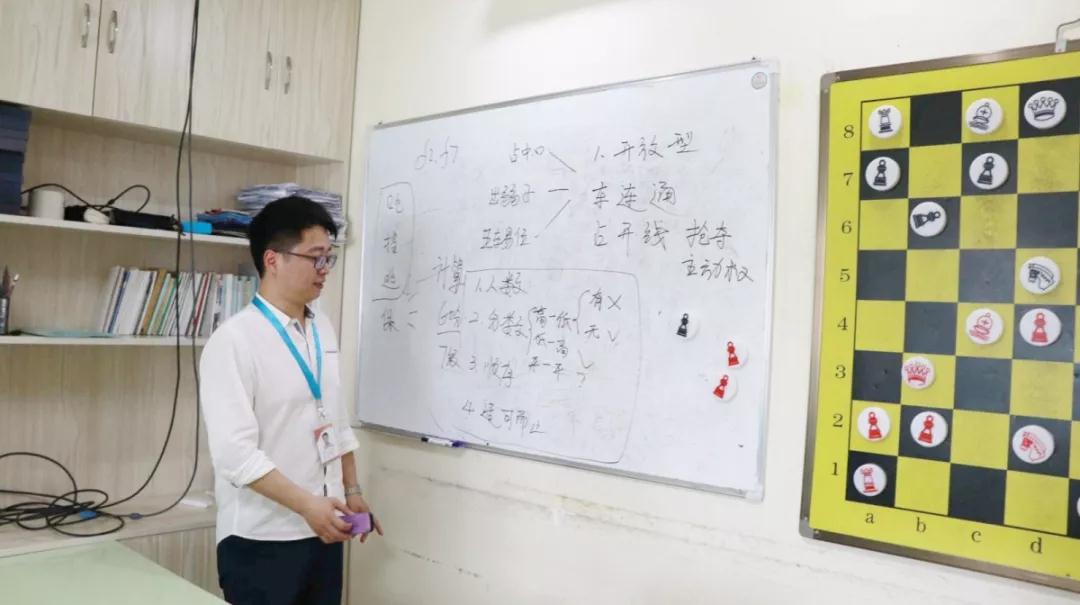 f2.f7
占中心
1.开放型
出轻子
车连通
王车易位
占开线 抢夺
主动权
吃
保
计算
1.人数
2 分数
高-低
有 X
无 √
低-高
平-平
?
3.顺序
4.适可而止
8
7
6
5
4
3
2
1
a
b
c
d